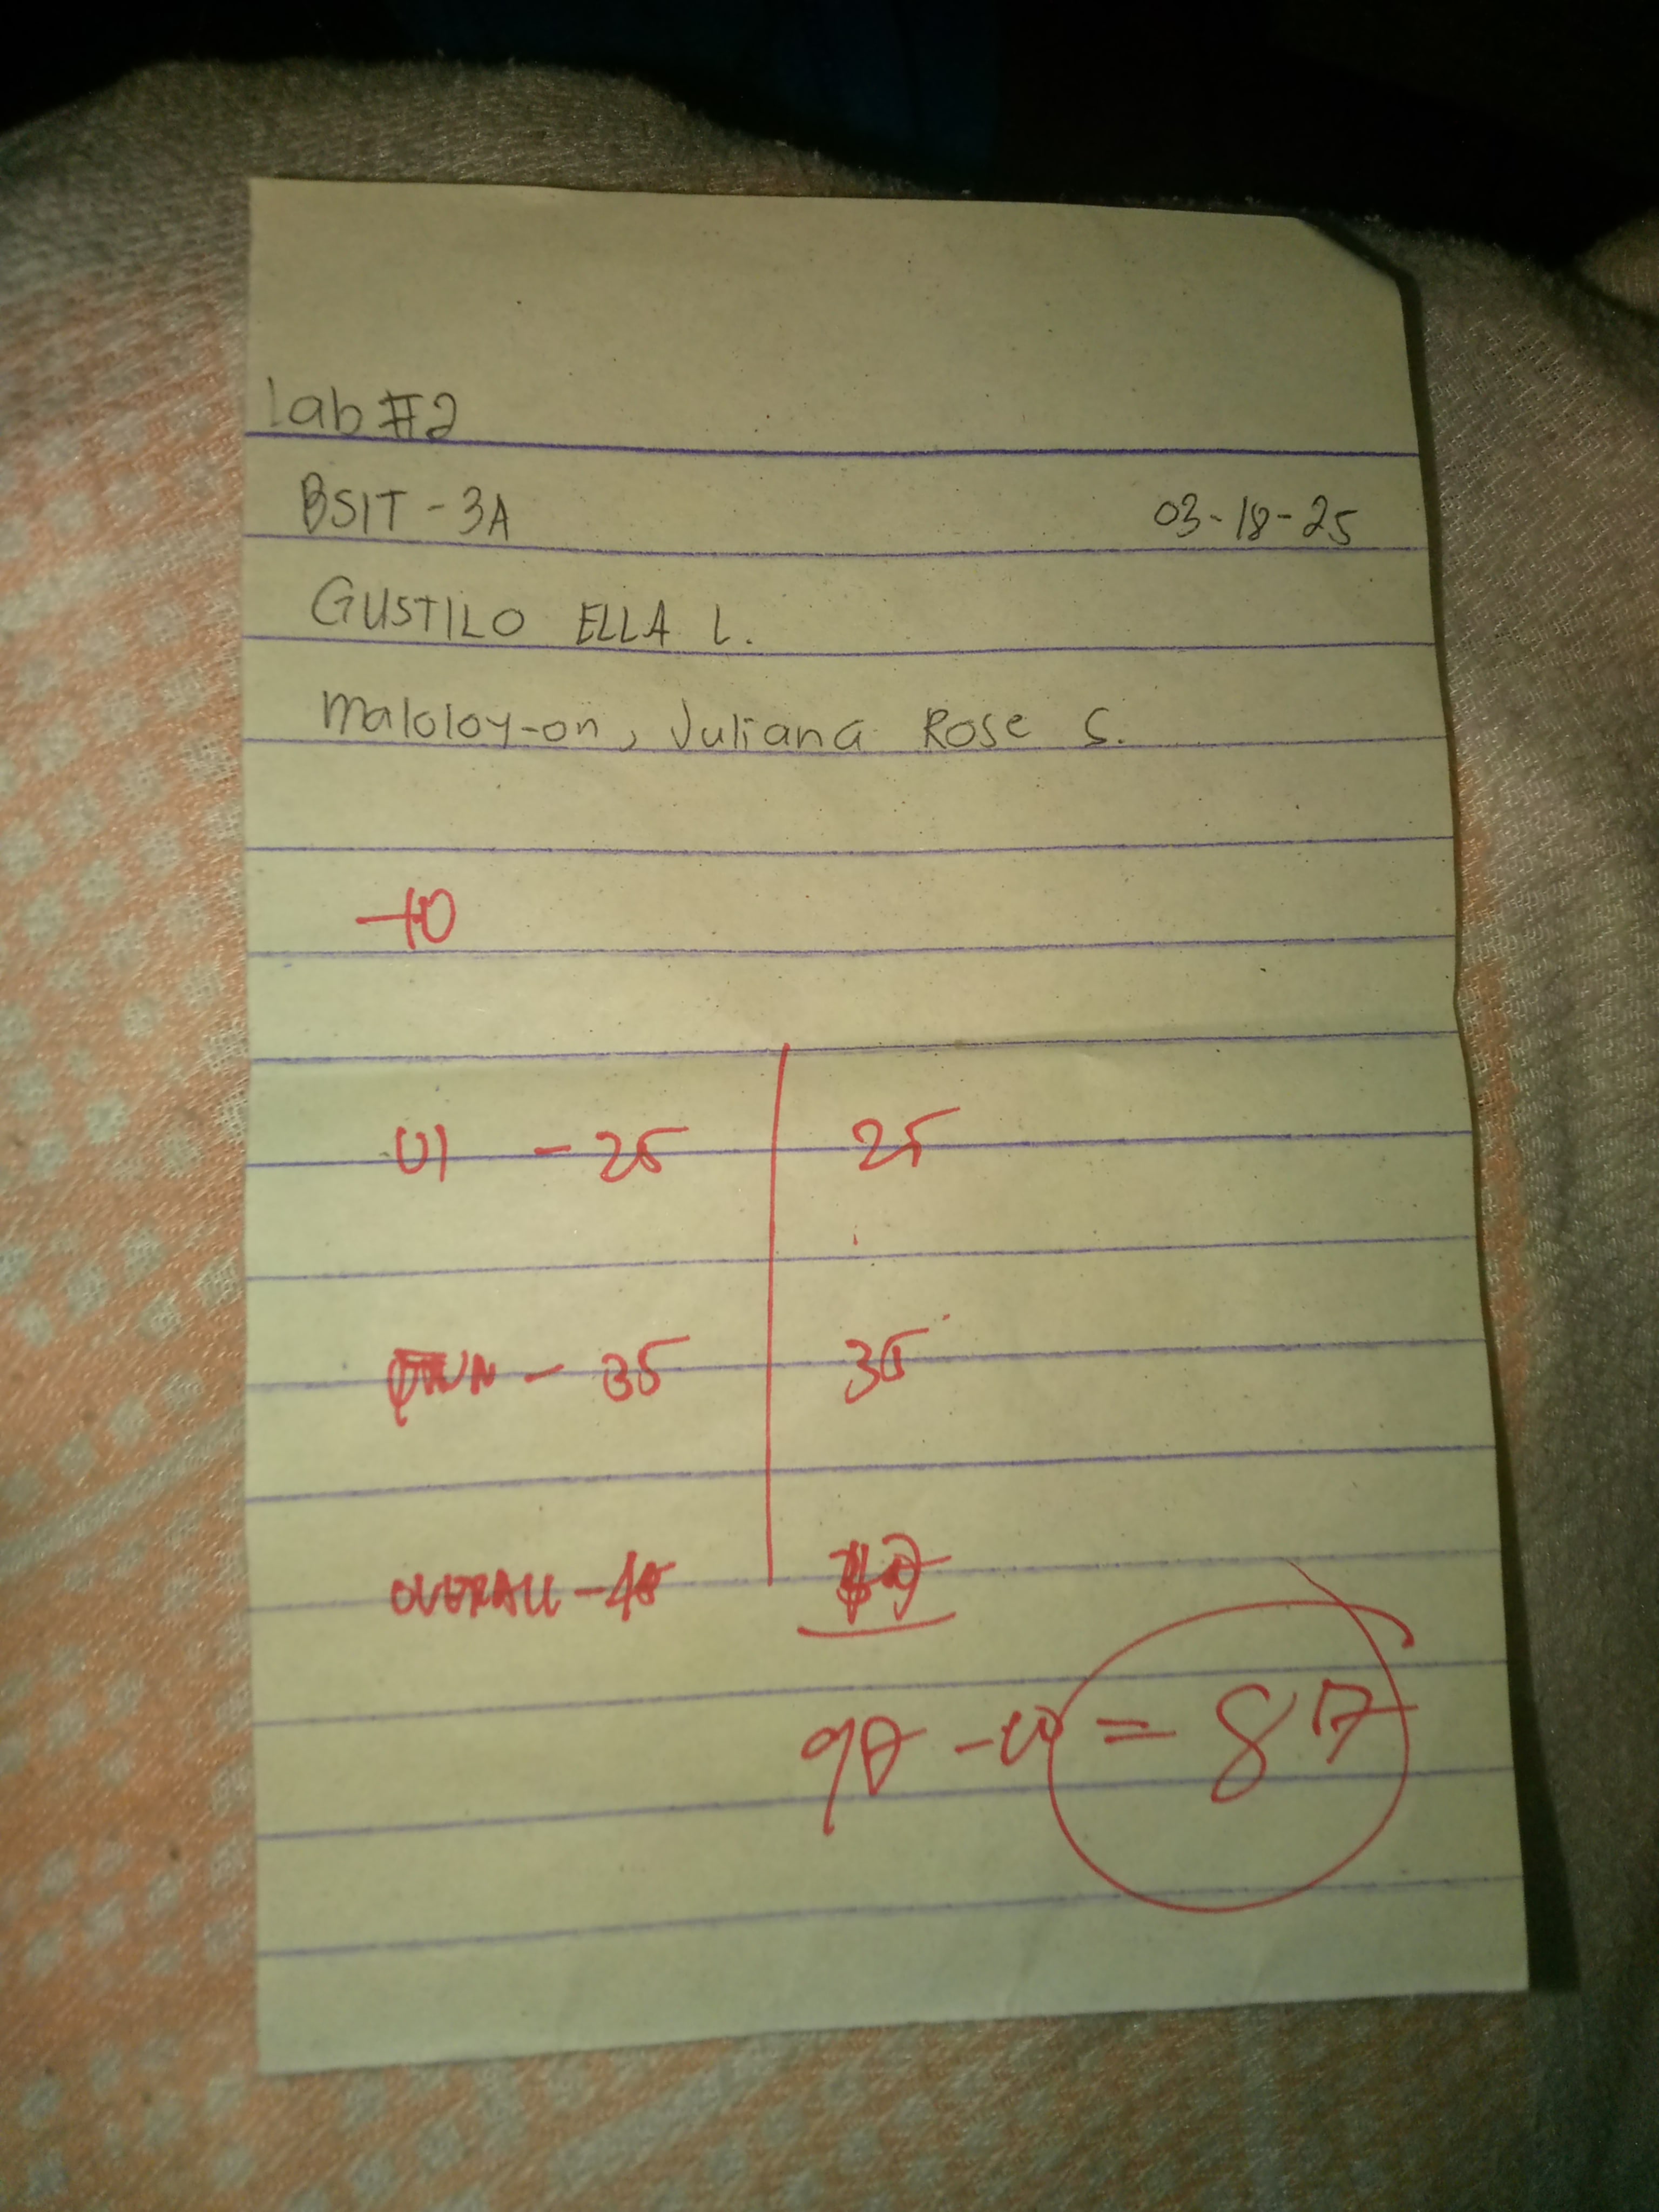 Lab #2
BSIT - 3A 03-18-25
GUSTILO ELLA L.
Maloloy-on, Juliana Rose S.
-10
UI - 25 25
- 35 35
OVERALL - 40
97 -10 = 87